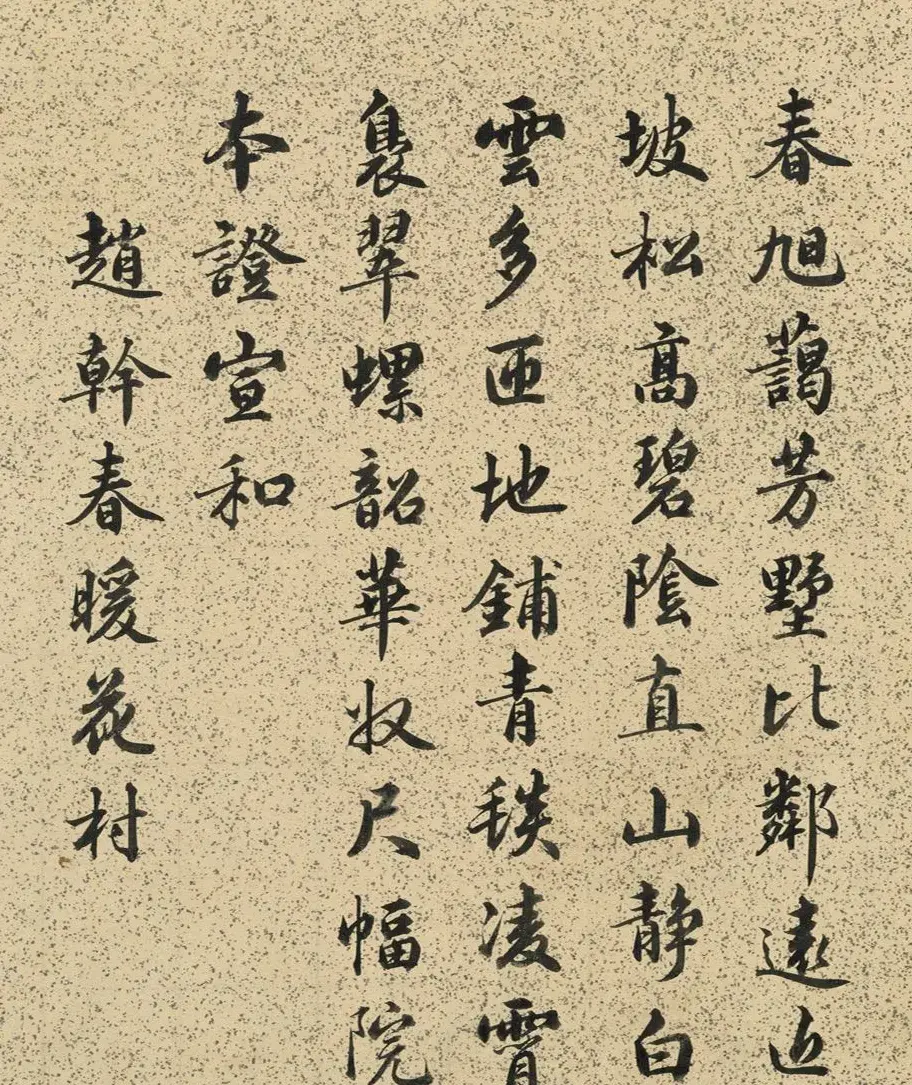 春旭藹芳墅比鄰遠近
坡松高碧陰直山靜白
雲多匝地鋪青毯凌霄
裊翠螺韶華收尺幅院
本證宣和
趙幹春暖花村